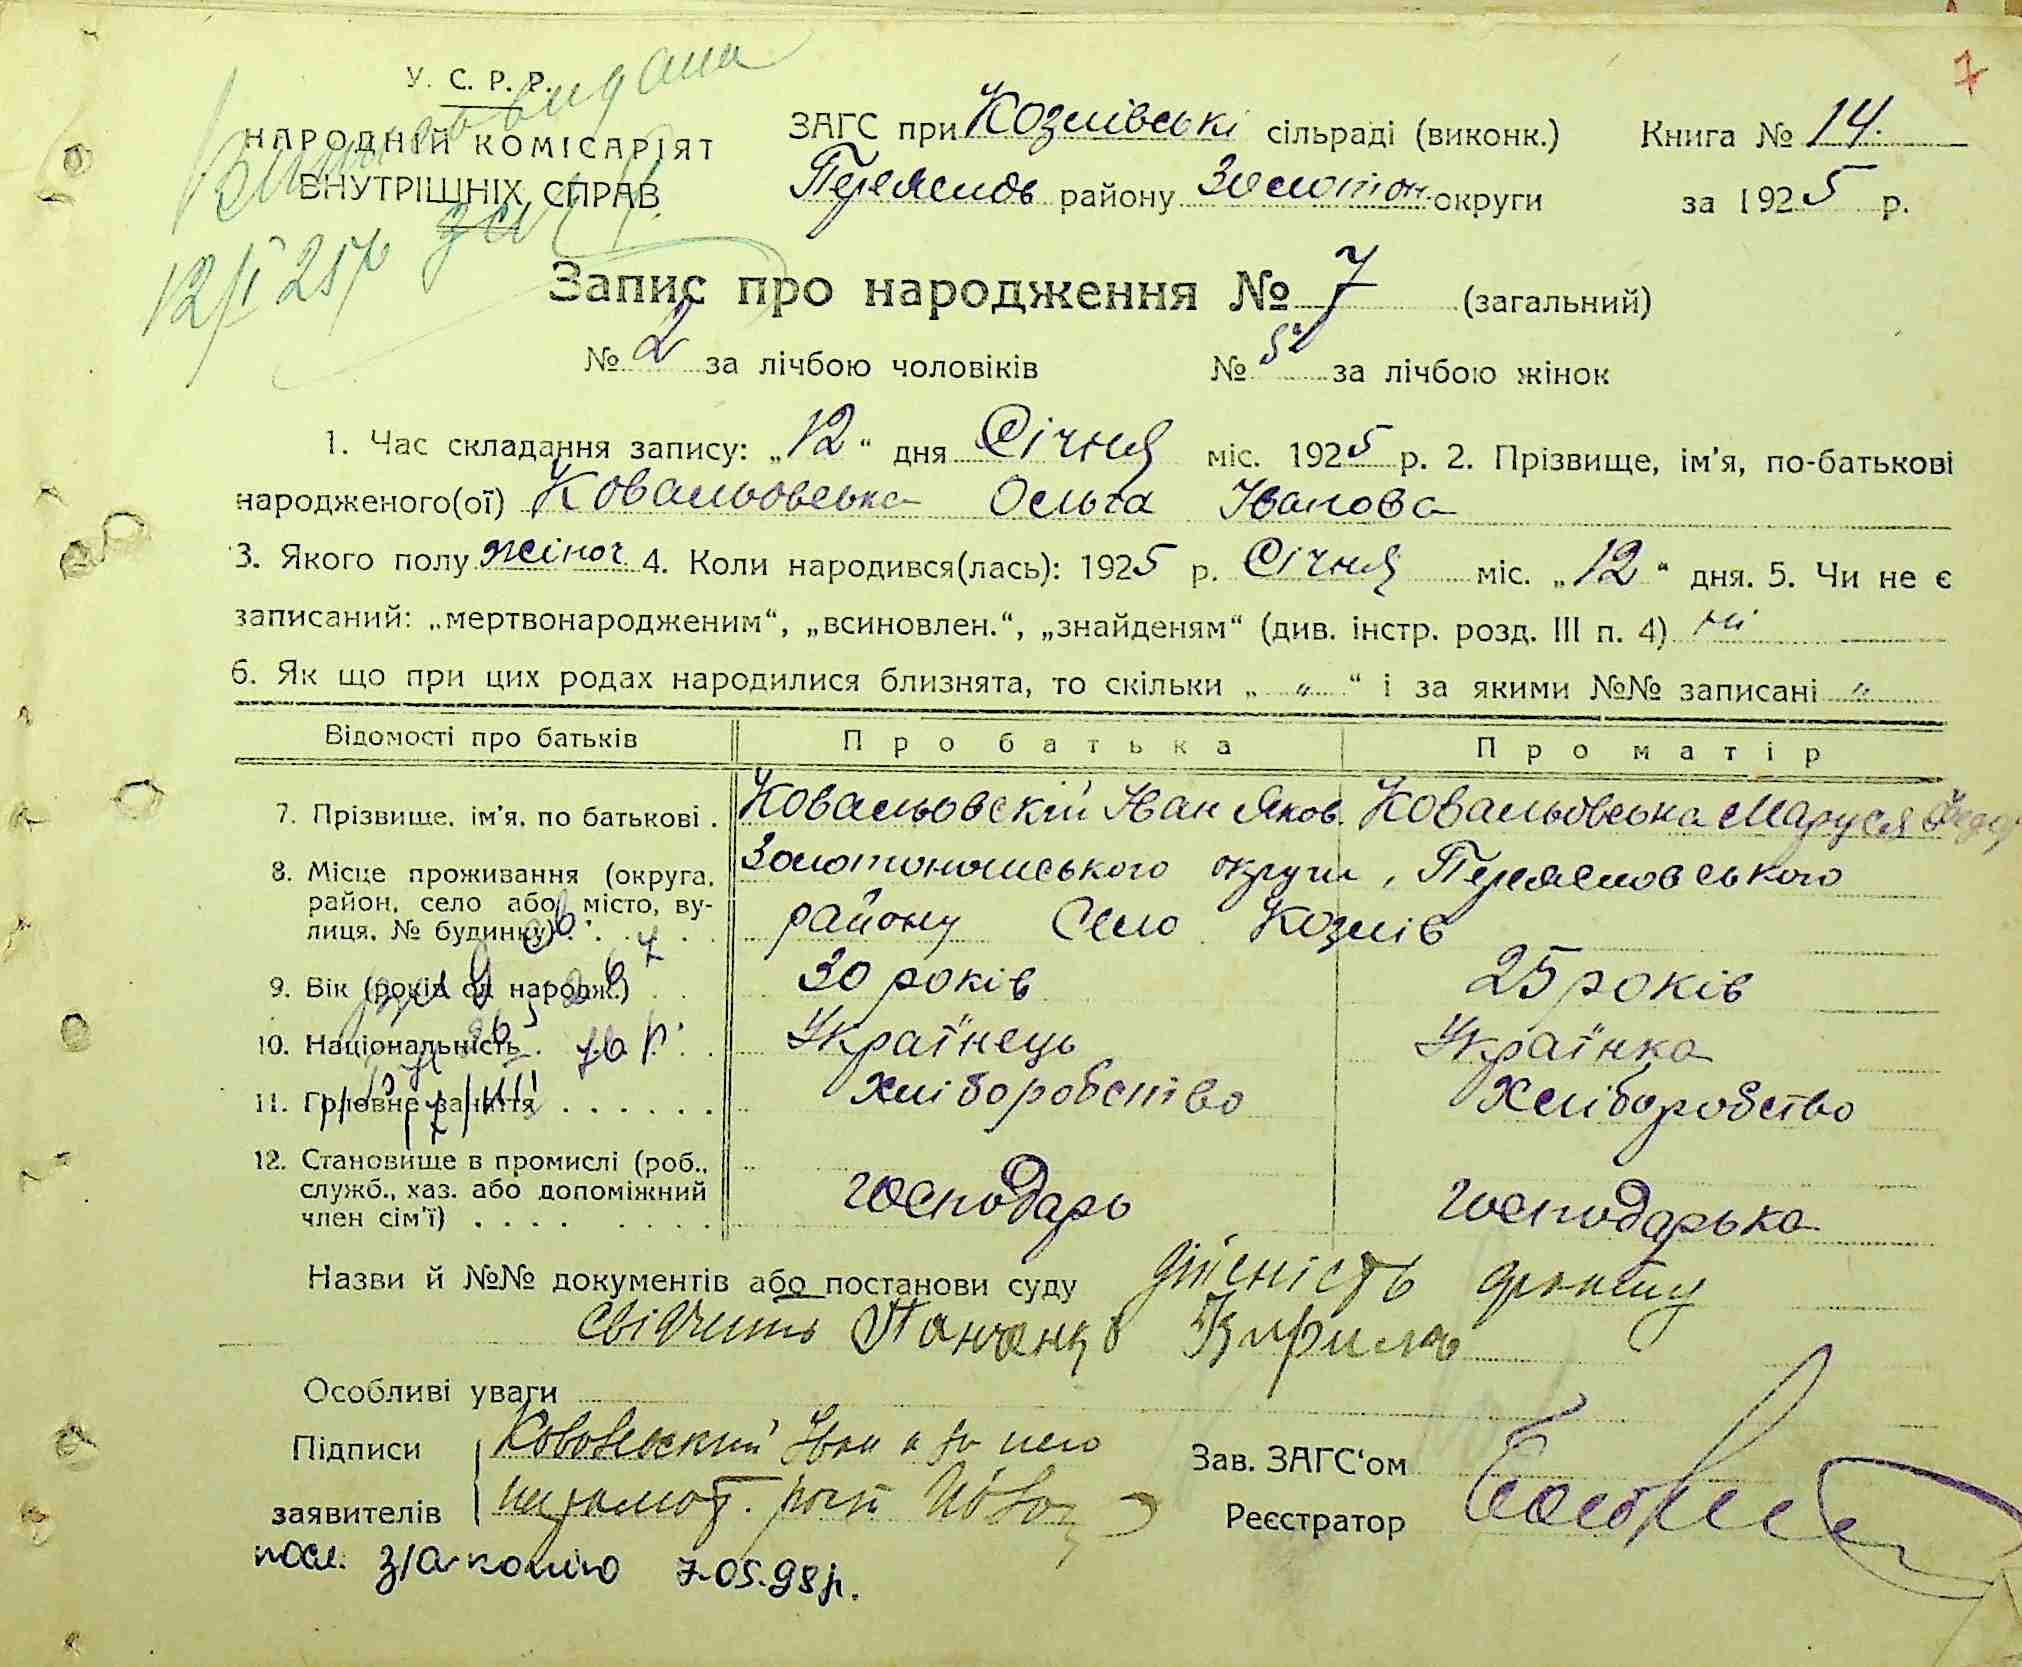 7
У. С. Р. Р.
НАРОДНІЙ КОМІСАРІЯТ
ВНУТРІШНІХ СПРАВ
видана
12/I 25р
ЗАГС при Козлівські сільраді (виконк.) Книга № 14.
Переяслов району Золотон. округи за 1925 р.
Запис про народження № 7 (загальний)
№ 2 за лічбою чоловіків № 5 за лічбою жінок
1. Час складання запису: „12“ дня Січня міс. 1925 р. 2. Прізвище, ім'я, по-батькові
народженого(ої) Ковальовська Ольга Іванова
3. Якого полу жіноч 4. Коли народився(лась): 1925 р. Січня міс. „12“ дня. 5. Чи не є
записаний: „мертвонародженим“, „всиновлен.“, „знайденям“ (див. інстр. розд. III п. 4) ні
6. Як що при цих родах народилися близнята, то скільки „ „ “ і за якими №№ записані „
Відомості про батьків Про батька Про матір
7. Прізвище, ім'я, по батькові . Ковальовскій Іван Яков. Ковальовська Маруся Федор
8. Місце проживання (округа, район, село або місто, вулиця, № будинку) Золотоношського округи, Переясловського
району Село Козлів
9. Вік (років од народж.) 30 років 25 років
10. Національність Українець Українка
11. Головне заняття Хліборобство Хліборобство
12. Становище в промислі (роб., служб., хаз. або допоміжний член сім'ї) господарь господарька
Назви й №№ документів або постанови суду дійсність
свідчить Кирило
Особливі уваги
Підписи Іван а за него
заявителів неграмот.
Зав. ЗАГС'ом
Реєстратор
посл. з/а копію 7.05.98р.